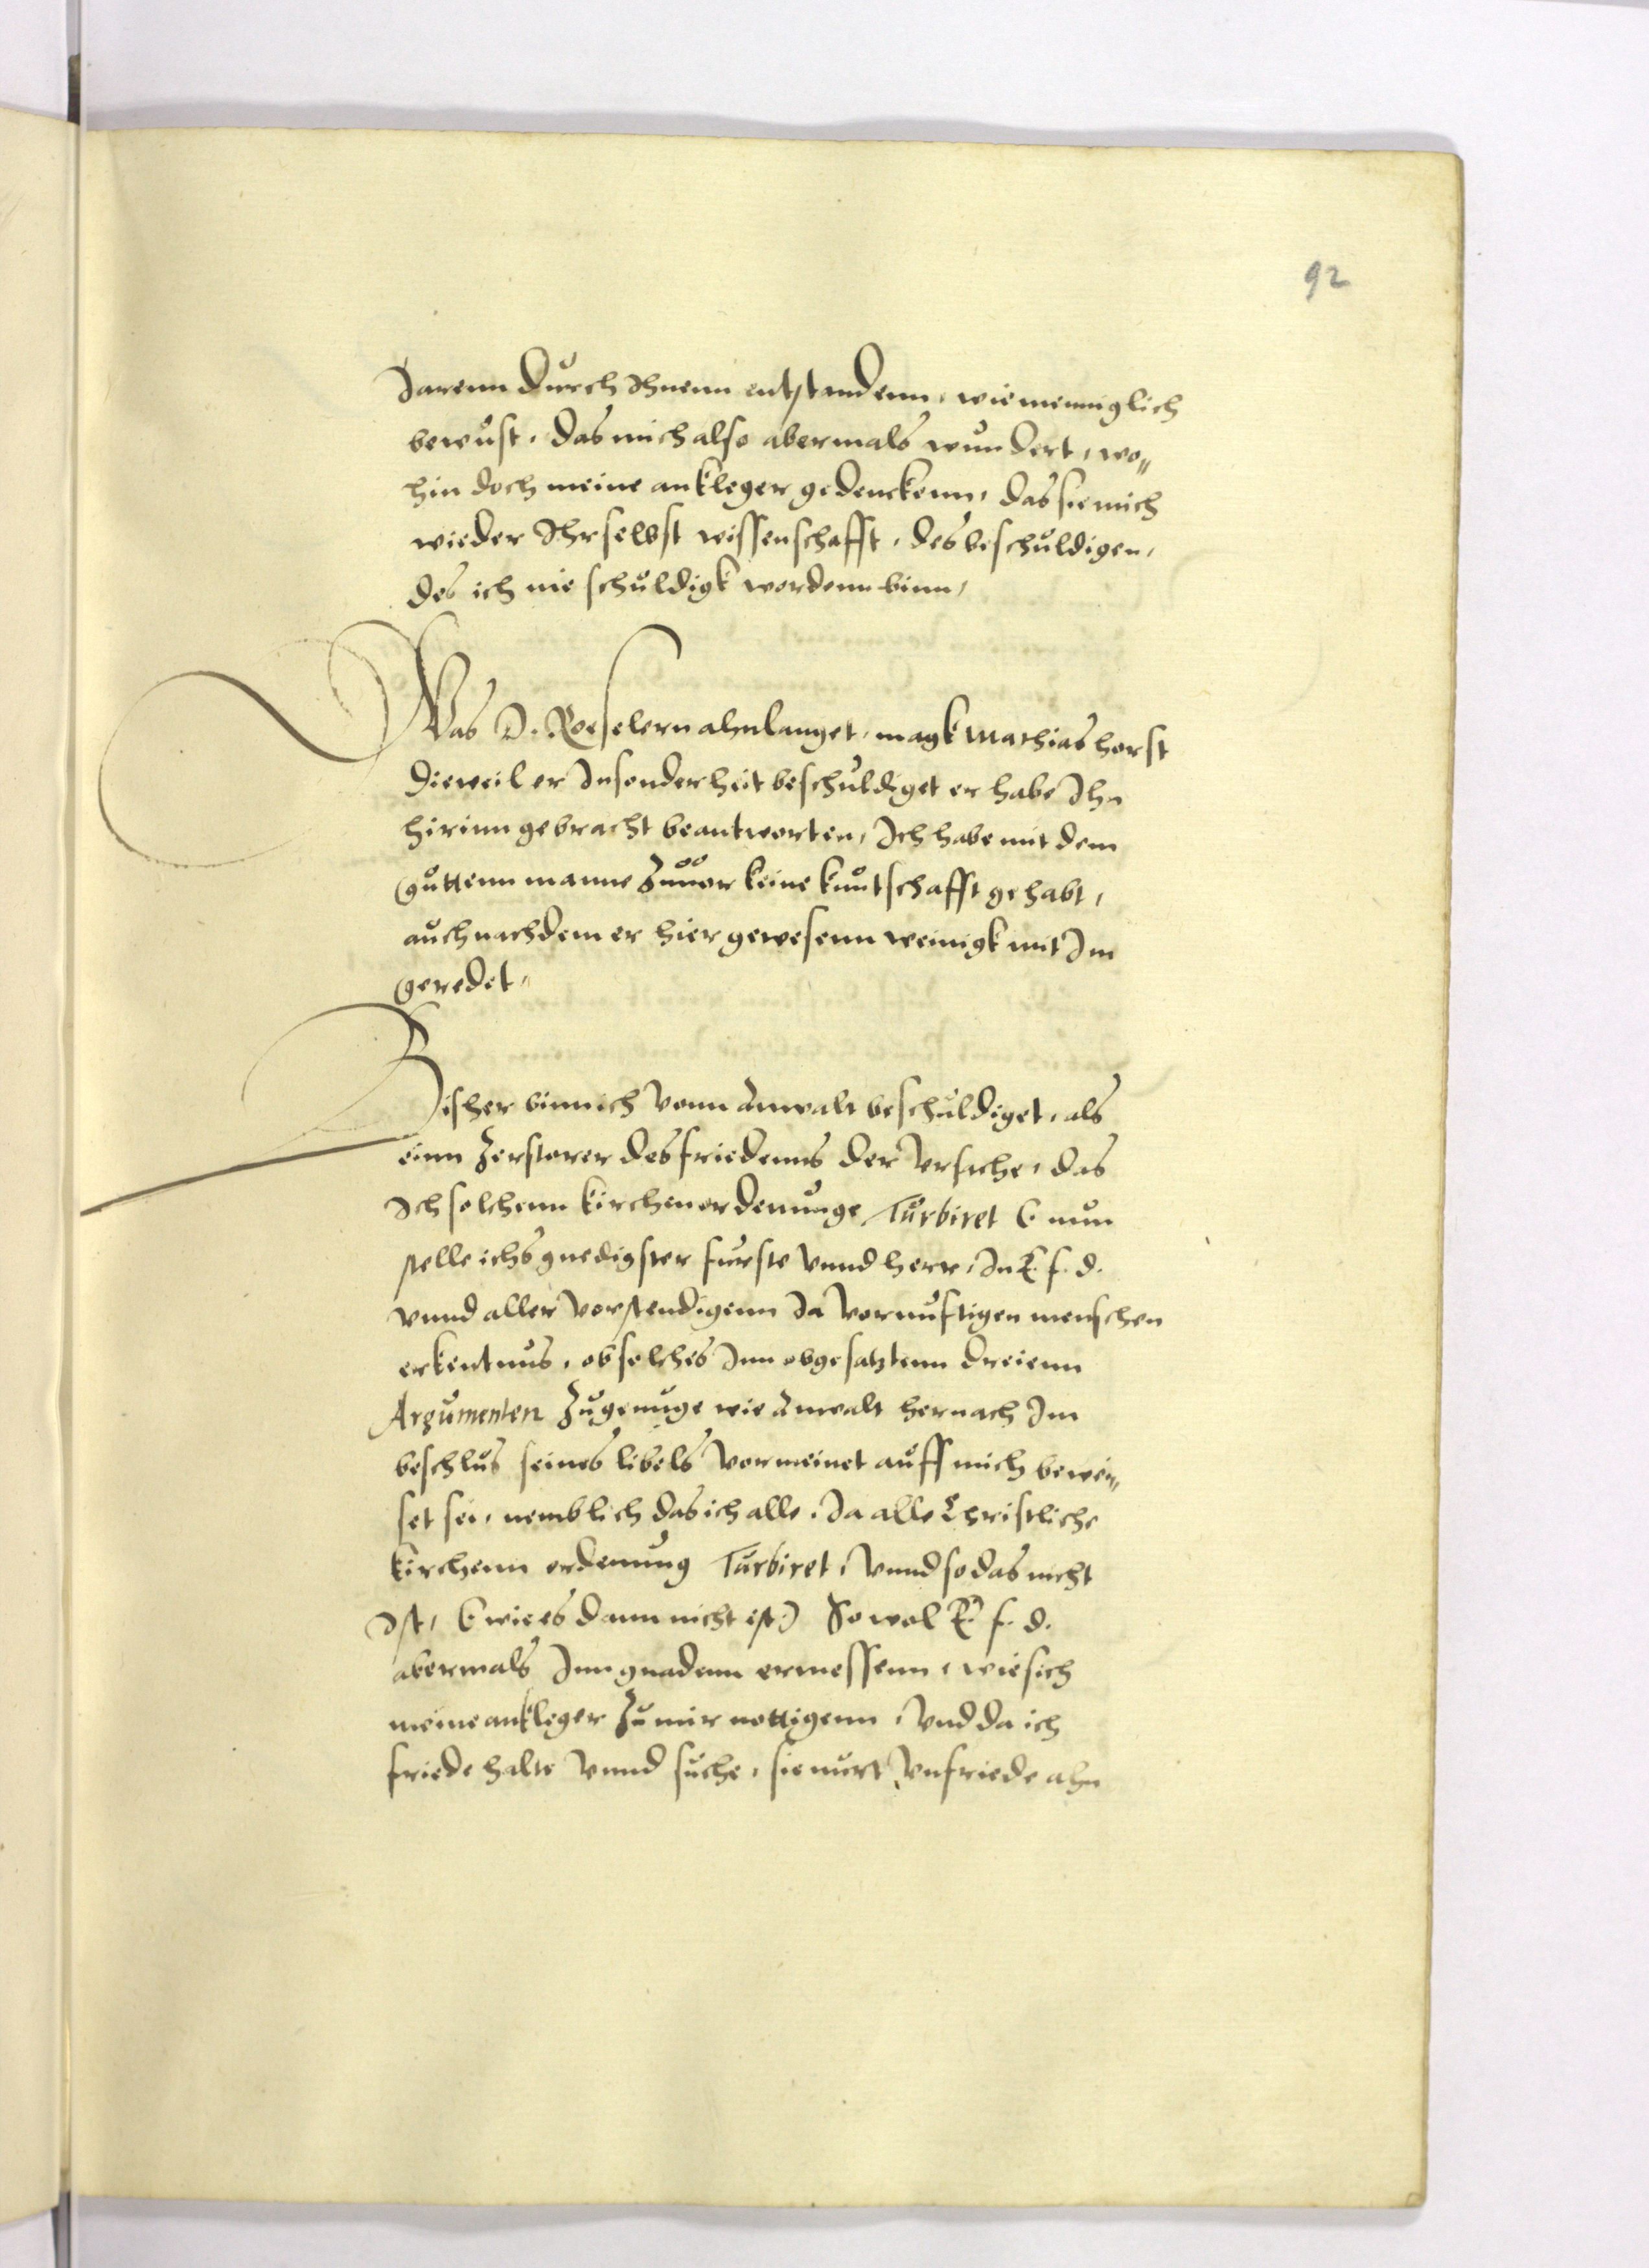 92
Jarenn durch Ihnenn entstandenn, wie menniglich
bewust, das mich also abermals wundert, wo„
hin doch meine ankleger gedenckenn, das sie mich
wieder Ihr selbst wissenschafft, des beschuldigen,
des ich nie schuldigk wordenn binn,
Was D. Roeselern ahnlanget, magk Mathias horst
dieweil er Insonderheit beschuldiget er habe Ihn
hirinn gebracht beantworten, Ich habe mit dem
guttenn manne Zuuor keine kuntschafft gehabt,
auch nachdem er hier gewesenn weinigk mit Im
geredet,
Bisher binn ich vonn Anwalt beschuldiget, als
einn Zerstorer des friedenns der vrsache, das
Ich solchenn kirchenordenunge Turbiret (. nun
stelle ichs gnedigster furste vnnd herr, In E. f. d.
vnnd aller vorstendigenn Ja vornuftigen menschen
erkentnus, ob solches Inn obgesatztenn dreienn
Argumenten Zugenuge wie Anwalt hernach Im
beschlus seines libels vormeinet auff mich bewei„
set sei, nemblich das ich alle, Ja alle Christliche
kirchenn ordenung Turbiret, vnnd so das nicht
Ist, (. wie es dann nicht ist .) So wol E. f. d.
abermals Inn gnadenn ermessenn, wie sich
meine ankleger Zu mir nottigenn, vnd da ich
friede halte vnnd suche, sie nurt vnfriede ahn